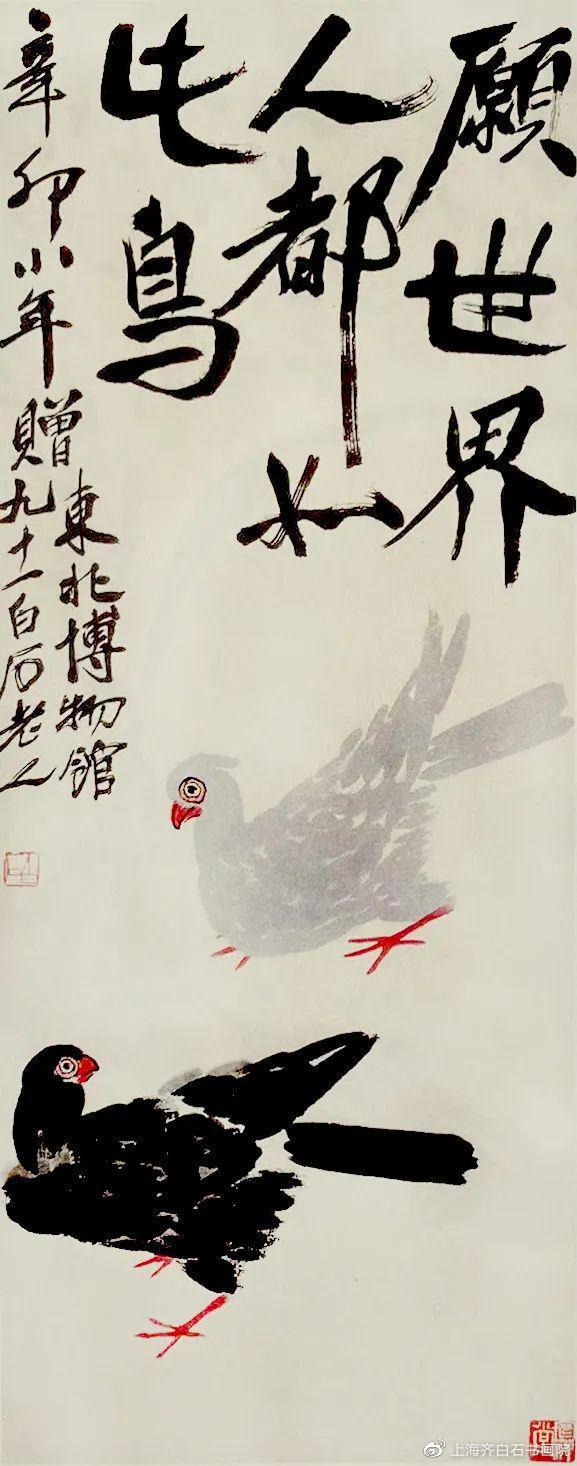 願世界
人都如
此鳥
辛卯小年贈
東北博物館
九十一白石老人
上海齐白石书画院